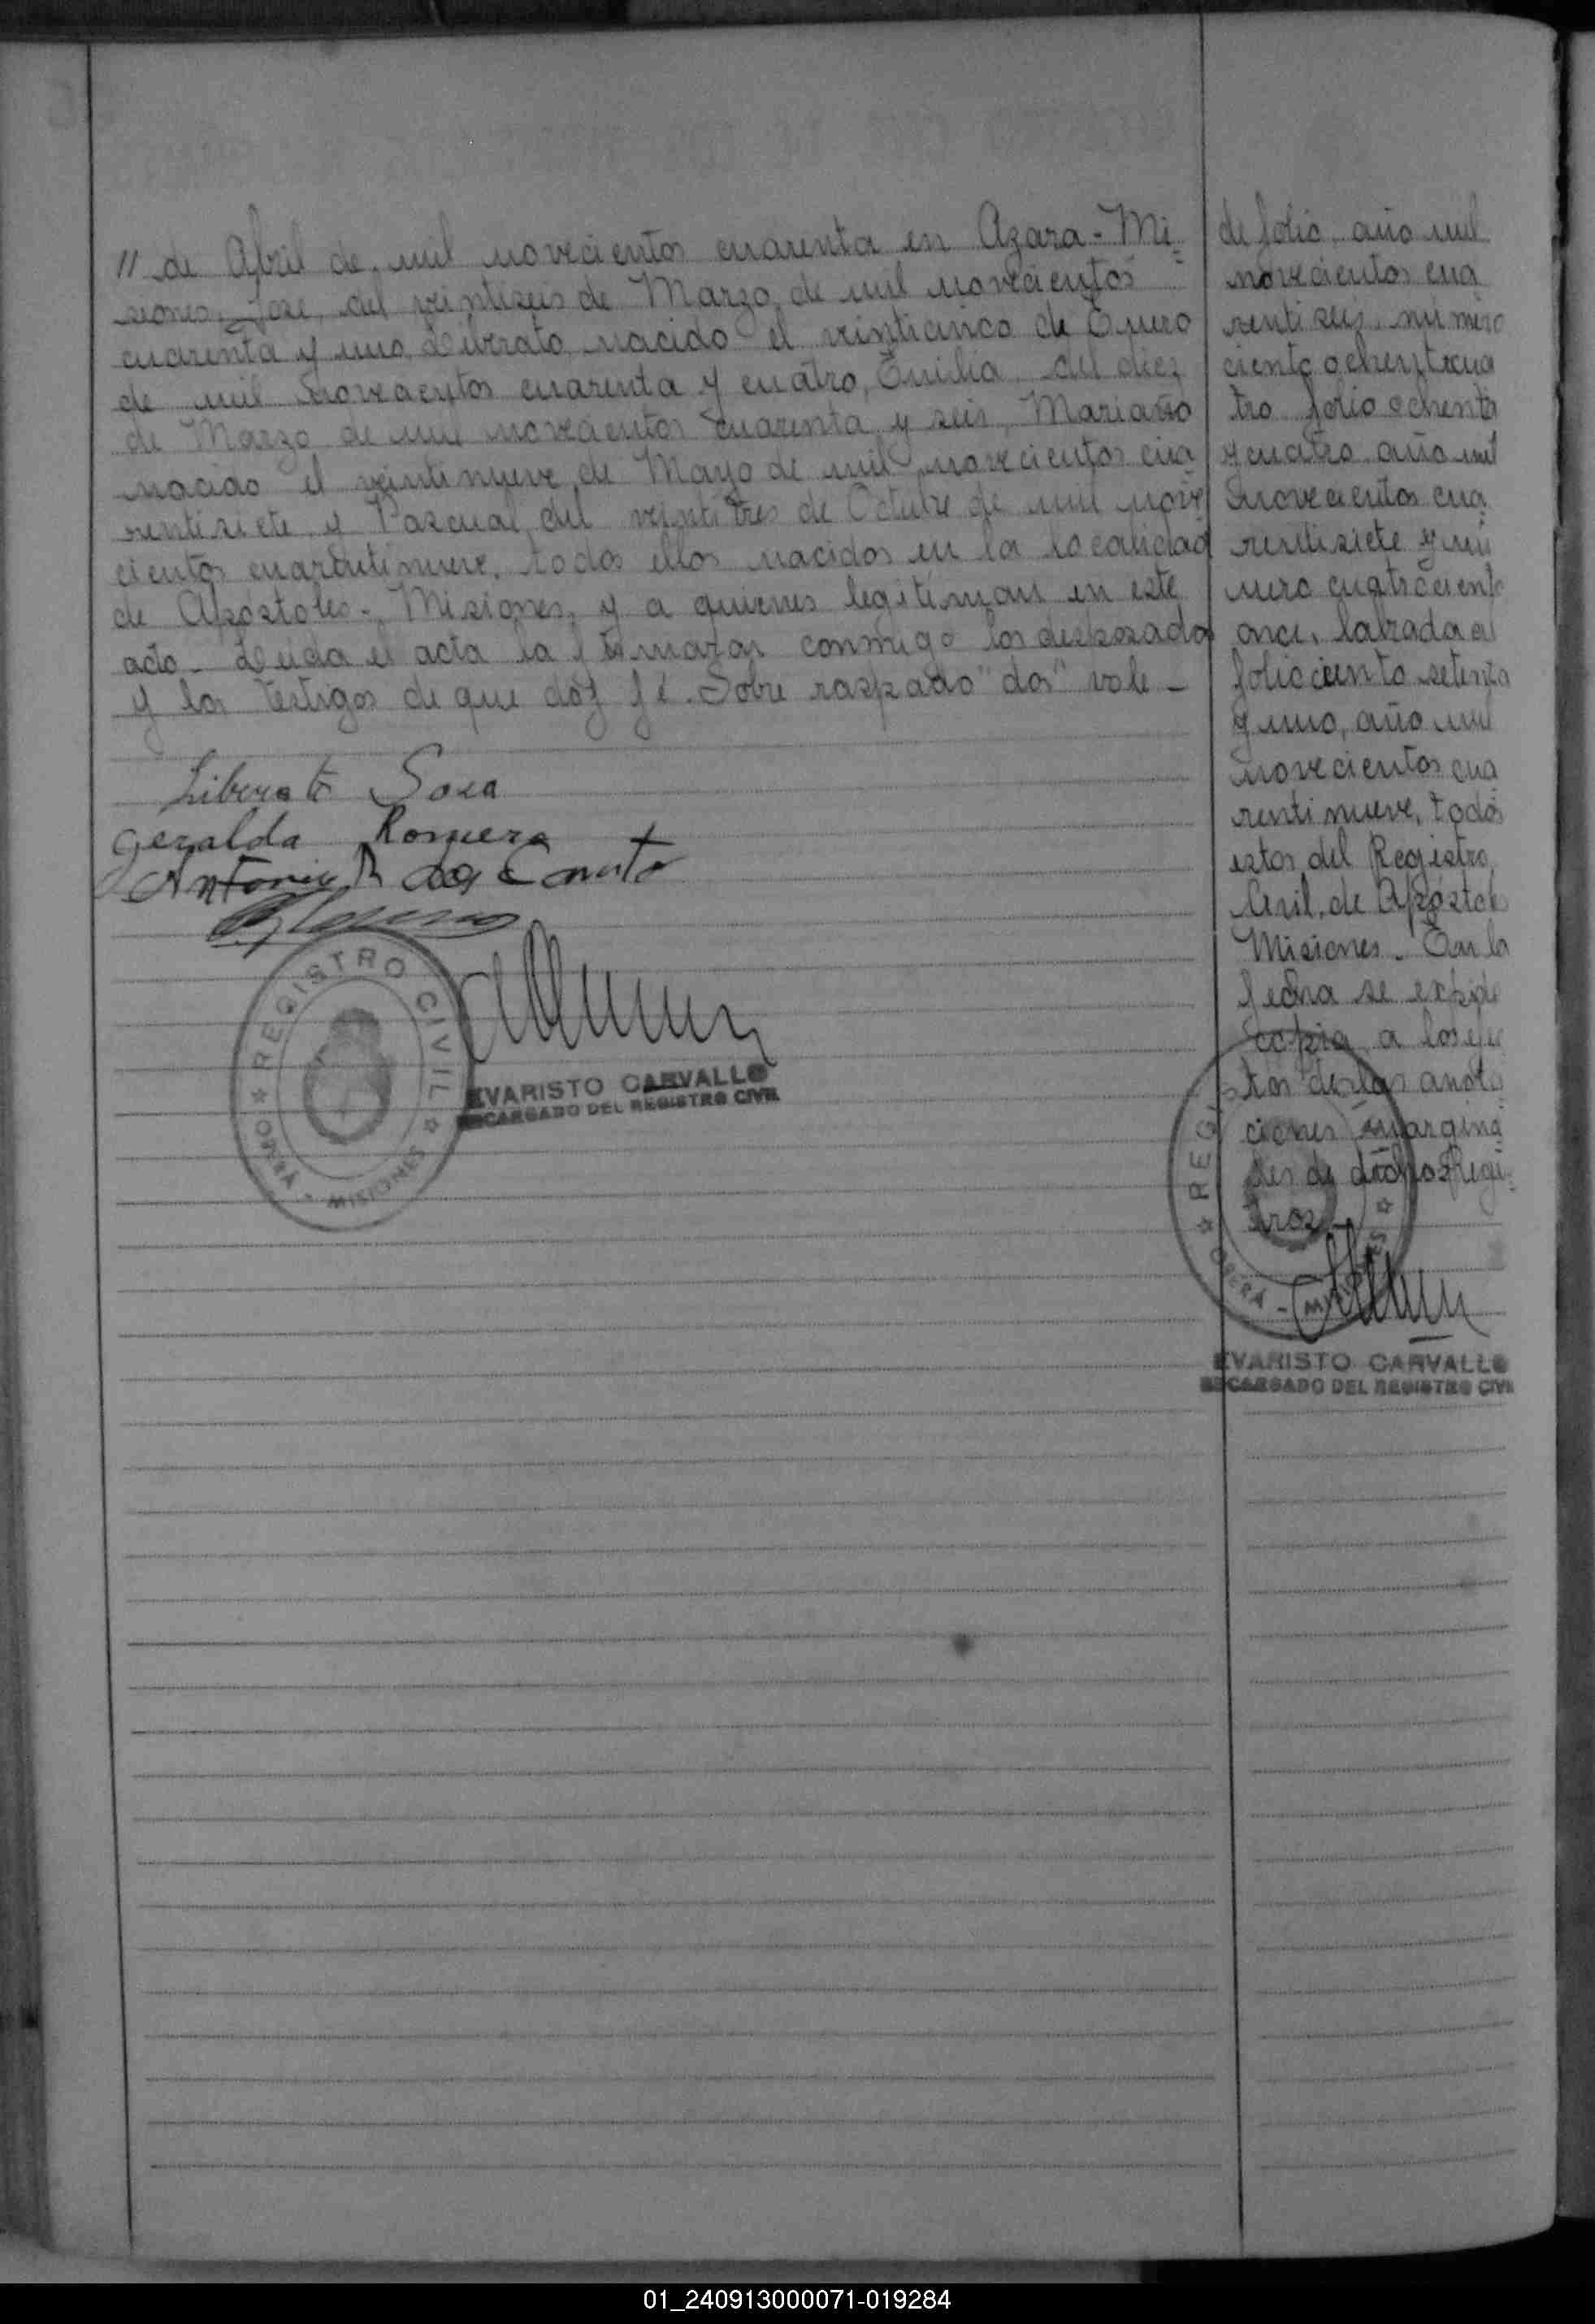 // de Abril de mil novecientos cuarenta en Azara - Mi
siones, José, del veintiseis de Marzo de mil novecientos
cuarenta y uno, Liberato, nacido el veinticinco de Enero
de mil novecientos cuarenta y cuatro, Emilia, del diez
de Marzo de mil novecientos cuarenta y seis, Mariano
nacido el veintinueve de Mayo de mil novecientos cua
rentisiete y Pascual del veintitres de Octubre de mil nove
cientos cuarentinueve, todos ellos nacidos en la localidad
de Apóstoles - Misiones, y a quienes legitiman en este
acto - Leida el acta la firmaron conmigo los desposados
y los testigos de que doy fé. Sobre raspado "dos" vale -
Liberato Sosa
Geralda Romero
Antonio Da
REGISTRO CIVIL
OBERÁ - MISIONES
EVARISTO CARVALLO
ENCARGADO DEL REGISTRO CIVIL
de folio, año mil
novecientos cua
rentiseis, número
ciento ochenticua
tro folio ochenta
y cuatro año mil
novecientos cua
rentisiete y nú
mero cuatrociento
once, labrada al
folio ciento setenta
y uno, año mil
novecientos cua
rentinueve, todos
estos del Registro
Civil de Apóstoles
Misiones. Con la
fecha se expide
copia a los efec
tos de las anota
ciones margina
les de dichos Regis
tros -
REGISTRO CIVIL
OBERÁ - MISIONES
EVARISTO CARVALLO
ENCARGADO DEL REGISTRO CIVIL
01_240913000071-019284